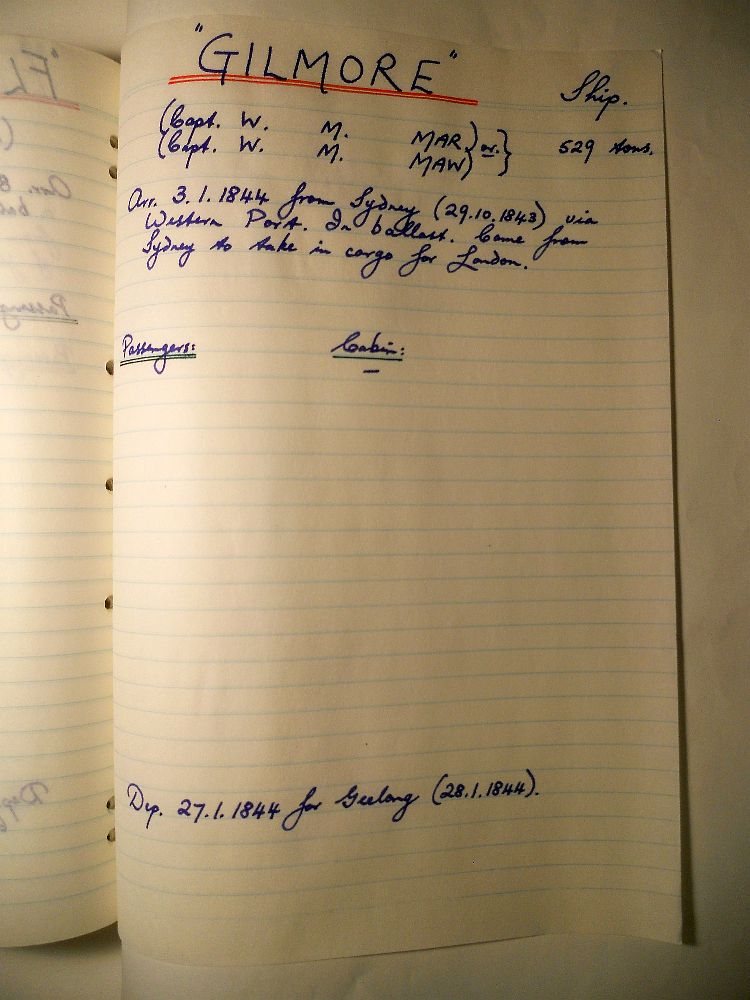 "GILMORE" Ship.
(Capt. W. M. MAR) or } 529 tons.
(Capt. W. M. MAW)
Arr. 3.1.1844 from Sydney (29.10.1843) via
Western Port. In ballast. Came from
Sydney to take in cargo for London.
Passengers: Cabin:
—
Dep. 27.1.1844 for Geelong (28.1.1844).